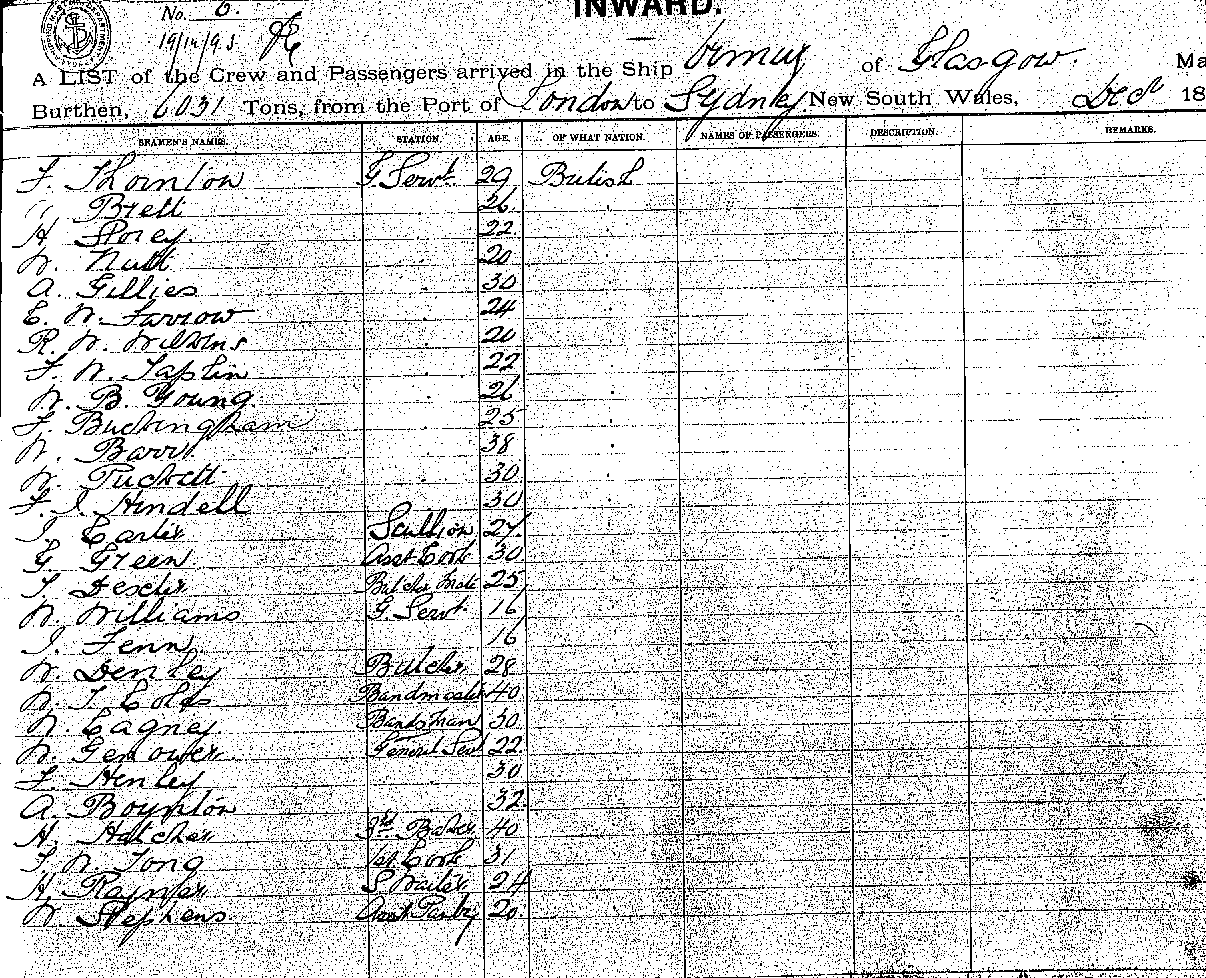 No. 6.
INWARD.
19/12/93
A LIST of the Crew and Passengers arrived in the Ship Ormuz of Glasgow. Ma
Burthen, 6031 Tons, from the Port of London to Sydney New South Wales, Decr 18
SEAMEN'S NAMES. STATION. AGE. OF WHAT NATION. NAMES OF PASSENGERS. DESCRIPTION. REMARKS.
F. Thornton G Servt 29 British
Brett 26
H Storey 22
W. Nutt 20
A. Gillies 30
E. W. Farrow 24
R. W. Wilkins 20
F. W. Taplin 22
W. B. Young 26
F. Buckingham 25
W. Barr 38
W. Puckett 30
F. J. Hindell 30
Scullion 27
G Green Asst Cook 30
T. Dexter Butchers Mate 25
W. Williams G. Servt 16
J. Fenn 16
W. Denley Butcher 28
W. T. Coles Bandmaster 40
W. Eagney Bandsman 30
W. Genower General Servt 22
F. Henley 30
A. Boynton 32
H. Hatcher 3rd Baker 40
F. W. Tong 1st Cook 31
H. Rayner S Waiter 24
W. Stephens Asst Pantry 20